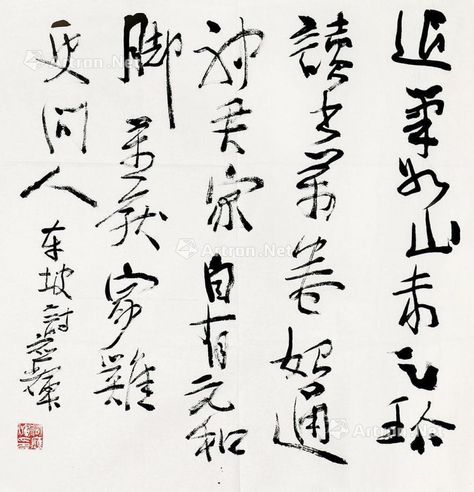 退筆如山未足珍
讀書萬卷始通
神君家自有元和
脚莫厭家雞
更問人
東坡詩應輝
Artron.Net
Artron.Net
Artron.Net
Artron.Net